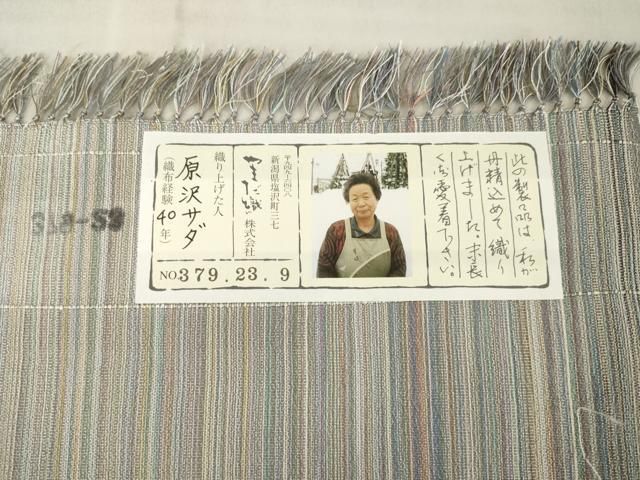 此の製品は、私が
丹精込めて織り
上げました。末長
くご愛着下さい。
〒九四九ー六四〇八
新潟県塩沢町三七
まだ織 株式会社
織り上げた人
原沢サダ
(織布経験40年)
NO.379.23.9